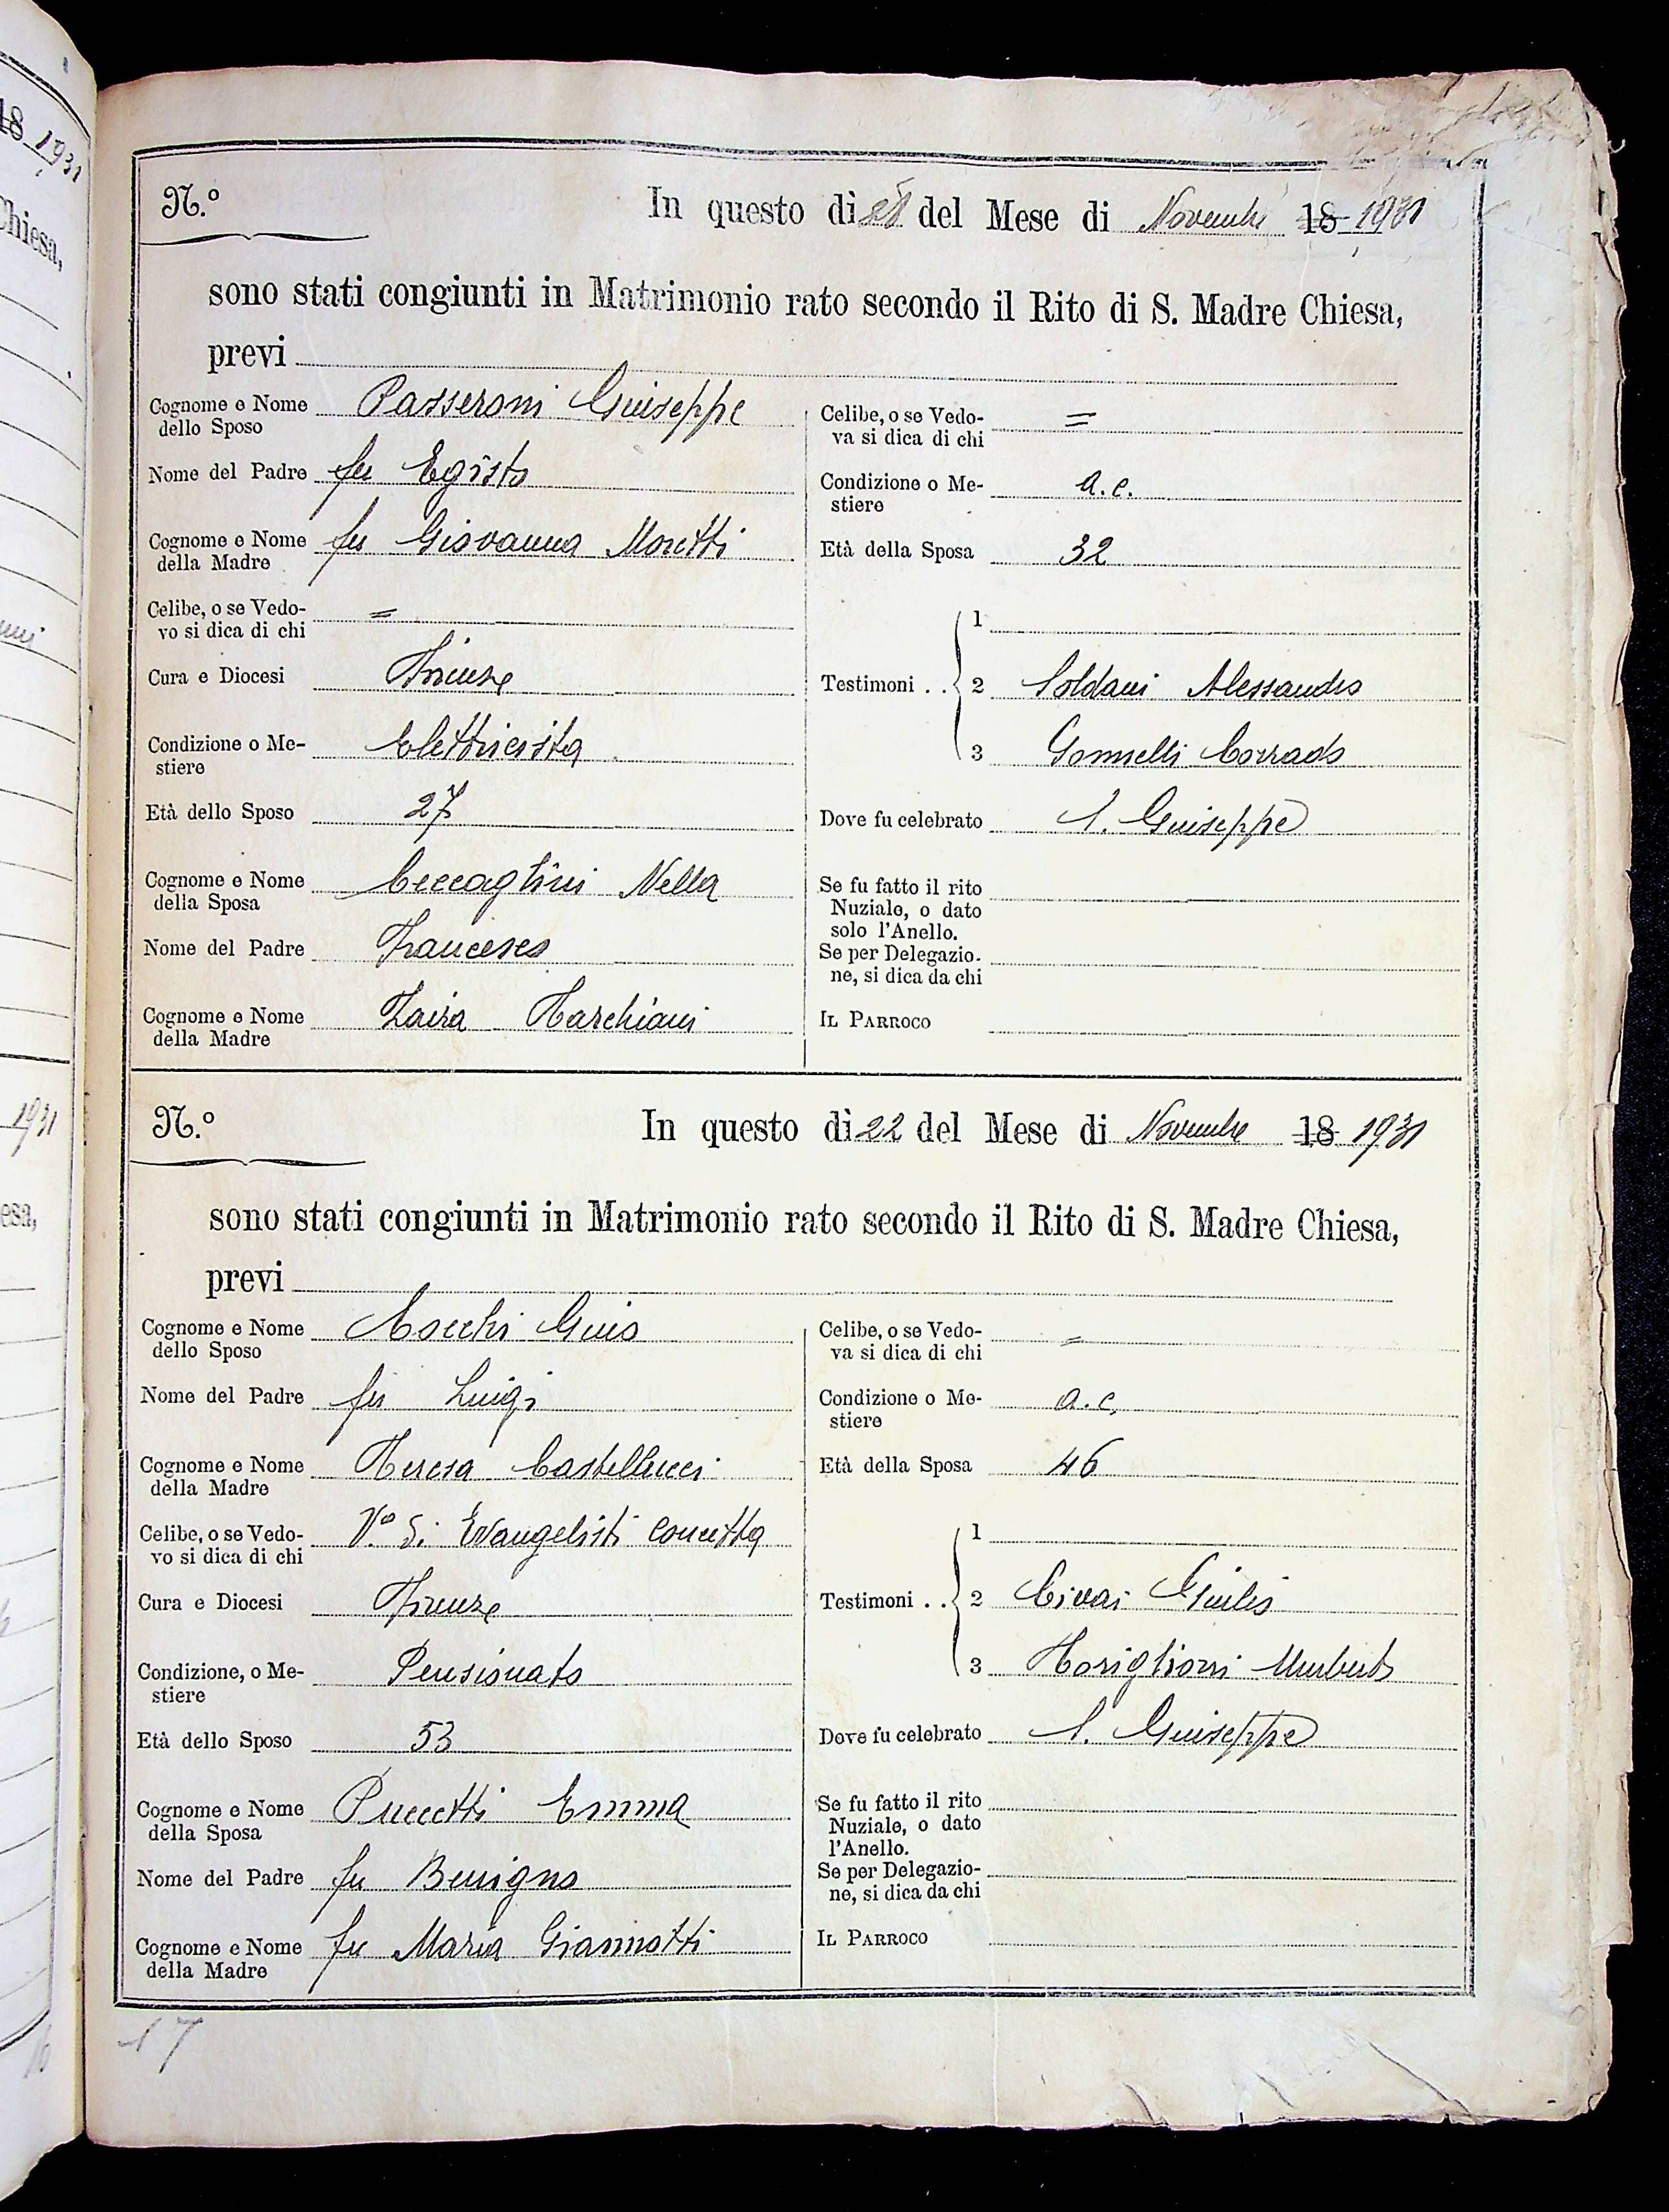 18 1931
Chiesa,
N.º
In questo dì 28 del Mese di Novembre 18 1931
sono stati congiunti in Matrimonio rato secondo il Rito di S. Madre Chiesa,
previ
Cognome e Nome dello Sposo Passeroni Giuseppe
Nome del Padre fu Egisto
Cognome e Nome della Madre fu Giovanna Moretti
Celibe, o se Vedovo si dica di chi =
Cura e Diocesi Firenze
Condizione o Mestiere Elettricista
Età dello Sposo 27
Cognome e Nome della Sposa Ceccaglini Nella
Nome del Padre Francesco
Cognome e Nome della Madre Zaira Marchiani
Celibe, o se Vedova si dica di chi =
Condizione o Mestiere a.c.
Età della Sposa 32
Testimoni . . 1
2 Soldani Alessandro
3 Gonnelli Corrado
Dove fu celebrato S. Giuseppe
Se fu fatto il rito Nuziale, o dato solo l'Anello.
Se per Delegazione, si dica da chi
IL PARROCO
1931
esa,
N.º
In questo dì 22 del Mese di Novembre 18 1931
sono stati congiunti in Matrimonio rato secondo il Rito di S. Madre Chiesa,
previ
Cognome e Nome dello Sposo Cocchi Gino
Nome del Padre fu Luigi
Cognome e Nome della Madre Teresa Castellucci
Celibe, o se Vedovo si dica di chi V.º di Evangelisti Concetta
Cura e Diocesi Firenze
Condizione, o Mestiere Pensionato
Età dello Sposo 53
Cognome e Nome della Sposa Puccetti Emma
Nome del Padre fu Benigno
Cognome e Nome della Madre fu Maria Giannotti
Celibe, o se Vedova si dica di chi =
Condizione o Mestiere a.c.
Età della Sposa 46
Testimoni . . 1
2 Civai Giulio
3 Umberto
Dove fu celebrato S. Giuseppe
Se fu fatto il rito Nuziale, o dato l'Anello.
Se per Delegazione, si dica da chi
IL PARROCO
17
16